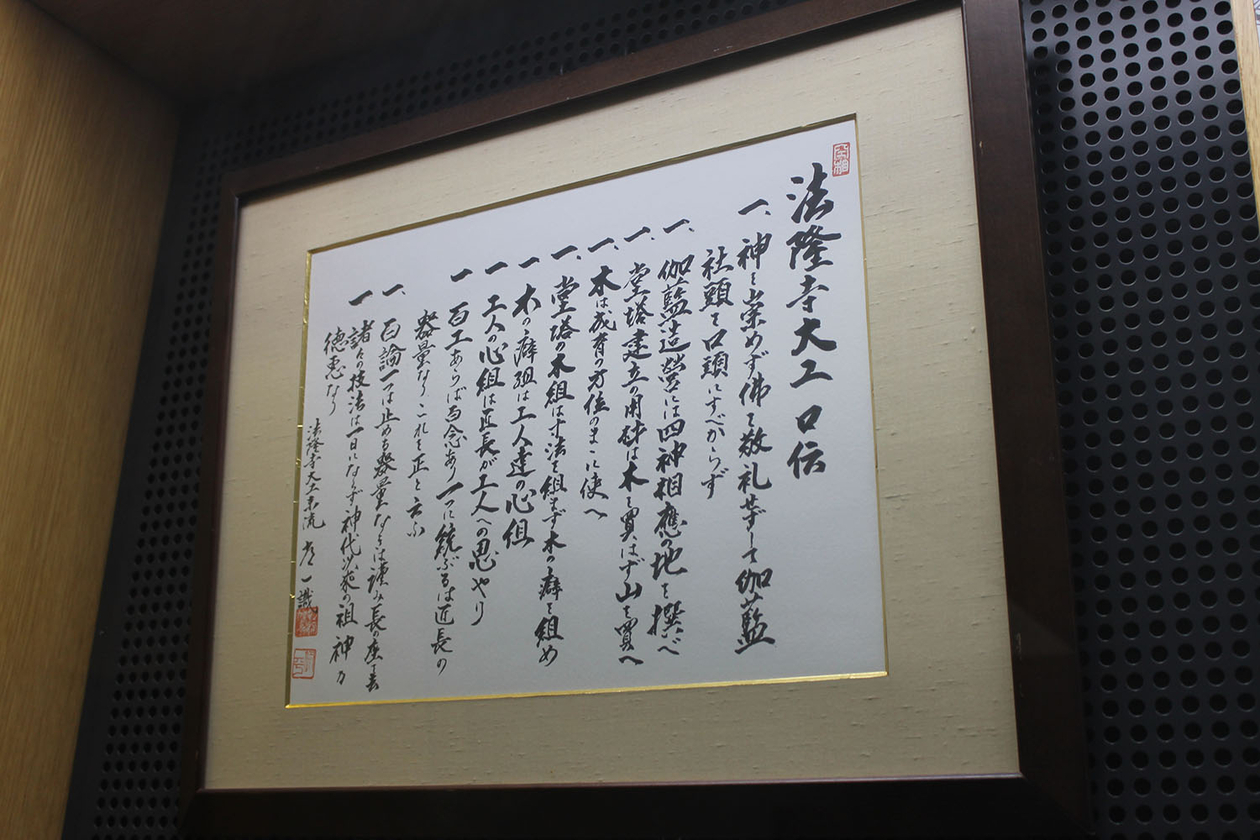 法隆寺大工口伝
一、神を崇めず佛を敬礼せずして伽藍
社頭を口頭にすべからず
一、伽藍造営には四神相應の地を撰べ
一、堂塔建立の用材は木を買はず山を買へ
一、木は成育の方位のまゝに使へ
一、堂塔の木組は寸法を組まず木の癖を組め
一 木の癖組は工人達の心組
一 工人の心組は匠長が工人への思やり
一 百工あらば百念あり一つに統ぶるは匠長の
器量なり これを正と云ふ
一、百論一つに止める器量なくば謹み長の座を去
一 諸々の技法は一日にならず 神代以来の祖神の
徳恵なり
法隆寺大工 一識